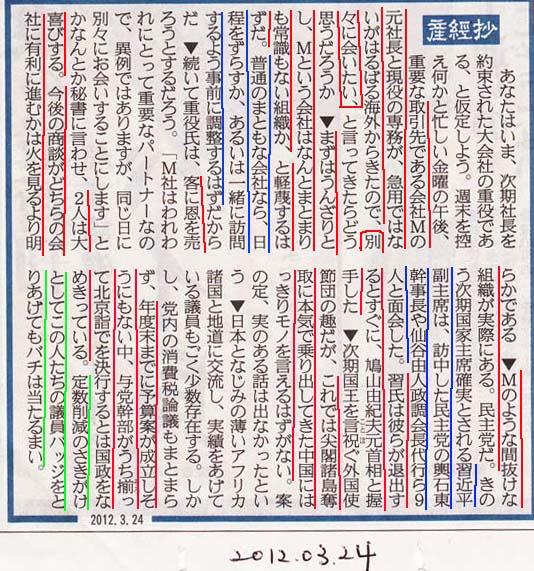 産經抄
あなたはいま、次期社長を
約束された大会社の重役であ
る、と仮定しよう。週末を控
え何かと忙しい金曜の午後、
重要な取引先である会社Mの
元社長と現役の専務が、急用ではな
いがはるばる海外からきたので、別
々に会いたい、と言ってきたらどう
思うだろうか▼まずはうんざりと
し、Mという会社はなんとまとまり
も常識もない組織か、と軽蔑するは
ずだ。普通のまともな会社なら、日
程をずらすか、あるいは一緒に訪問
するよう事前に調整するはずだから
だ▼続いて重役氏は、客に恩を売
ろうとするだろう。「M社はわれわ
れにとって重要なパートナーなの
で、異例ではありますが、同じ日に
別々にお会いすることにします」と
かなんとか秘書に言わせ、2人は大
喜びする。今後の商談がどちらの会
社に有利に進むかは火を見るより明
らかである▼Mのような間抜けな
組織が実際にある。民主党だ。きの
う次期国家主席確実とされる習近平
副主席は、訪中した民主党の輿石東
幹事長や仙谷由人政調会長代行ら9
人と面会した。習氏は彼らが退出す
るとすぐに、鳩山由紀夫元首相と握
手した▼次期国王を言祝ぐ外国使
節団の趣だが、これでは尖閣諸島奪
取に本気で乗り出してきた中国には
っきりモノを言えるはずがない。案
の定、実のある話は出なかったとい
う▼日本となじみの薄いアフリカ
諸国と地道に交流し、実績をあげて
いる議員もごく少数存在する。しか
し、党内の消費税論議もまとまら
ず、年度末までに予算案が成立しそ
うにもない中、与党幹部がうち揃っ
て北京詣でを決行するとは国政をな
めきっている。定数削減のさきがけ
としてこの人たちの議員バッジをと
りあげてもバチは当たるまい。
2012.3.24
2012.03.24